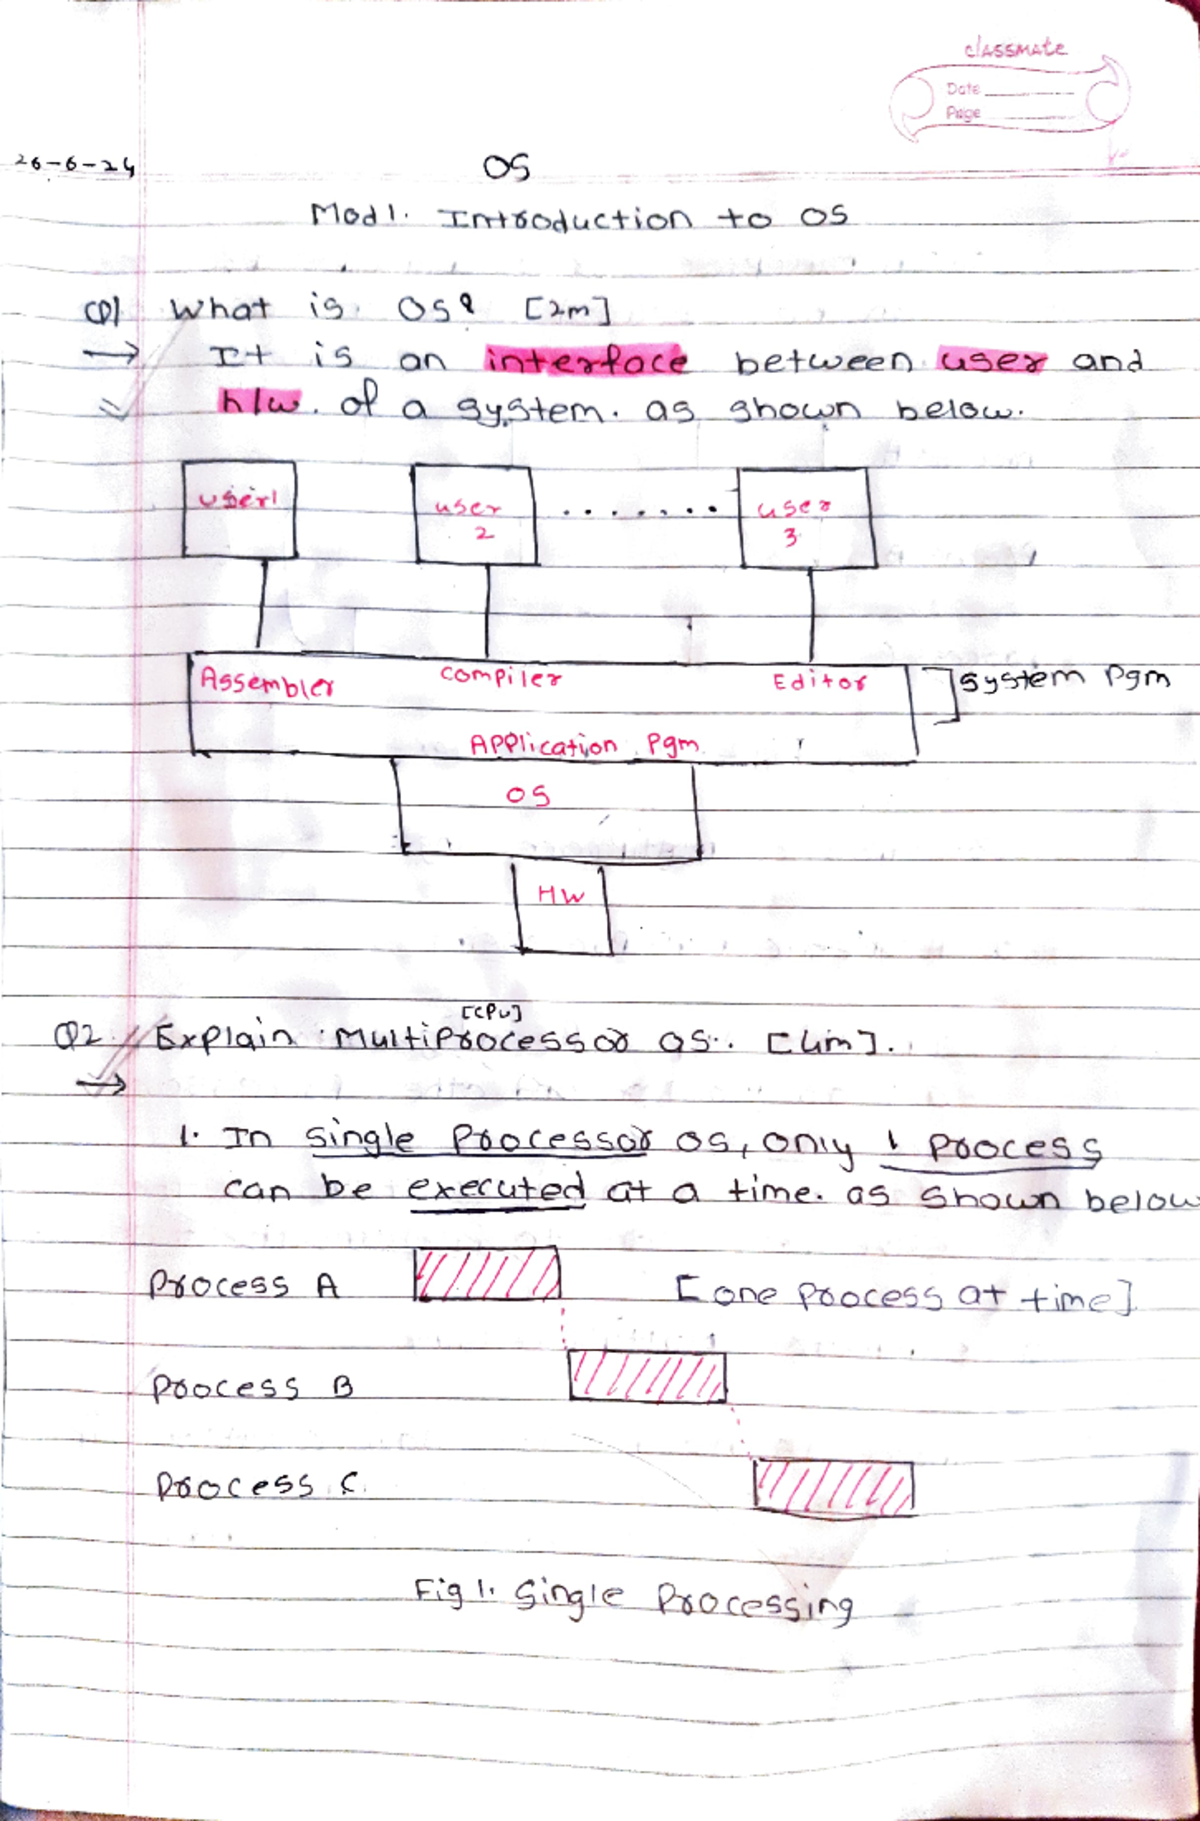 classmate
Date
Page
26-6-24
OS
Mod 1. Introduction to OS
Q1 What is OS? [2m]
→ It is an interface between user and
h/w. of a system. as shown below.
user1 user 2 ....... user 3
Assembler Compiler Editor System Pgm
Application Pgm
OS
HW
[CPU]
Q2. Explain Multiprocessor OS. [4m].
→
1. In Single Processor OS, only 1 Process
can be executed at a time. as shown below
Process A [one process at time]
Process B
Process C.
Fig 1. Single Processing